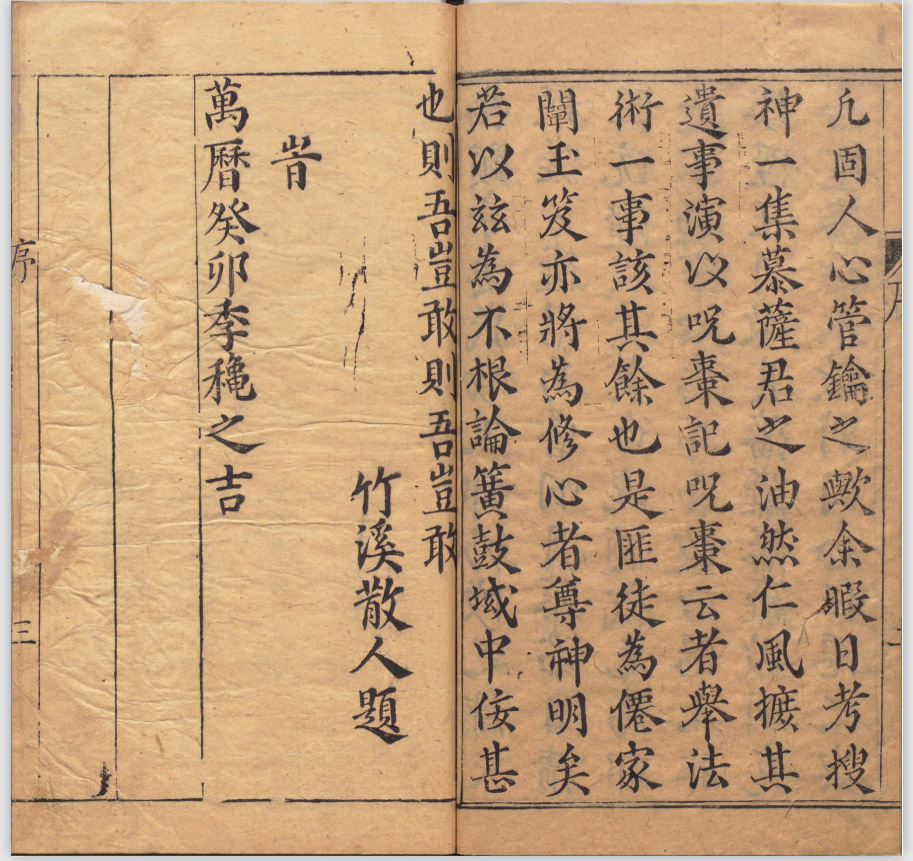 凢固人心管鑰之歟余暇日考搜
神一集慕薩君之油然仁風摭其
遺事演以呪棗記呪棗云者舉法
術一事該其餘也是匪徒為僊家
闡玉笈亦將為修心者尊神明矣
若以玆為不根論簧鼓域中佞甚
也則吾豈敢則吾豈敢
竹溪散人題
旹
萬曆癸卯季穐之吉
序
三